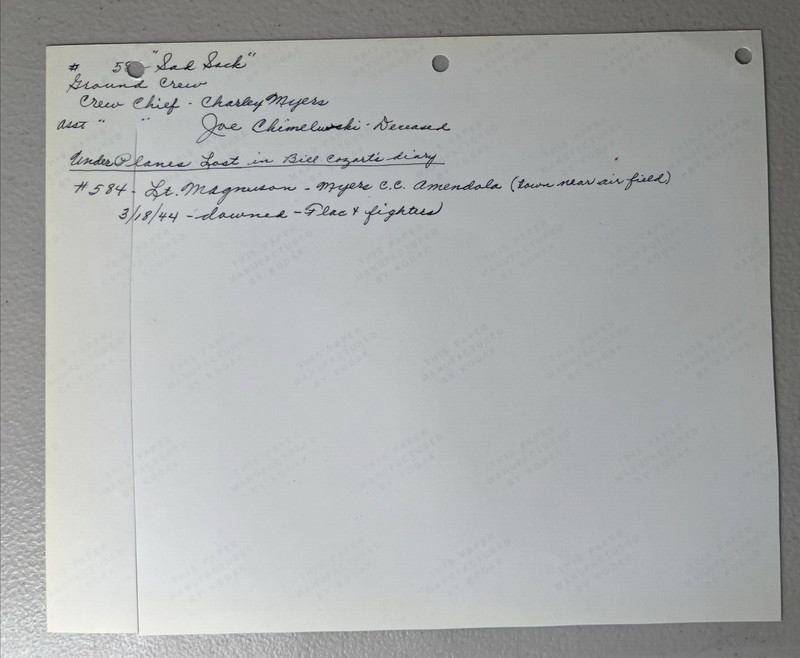 # 58 - "Sad Sack"
Ground Crew
Crew Chief - Charley Myers
Asst " " Joe Chimelewski - Deceased
Under Planes Lost in Bill Cozart's diary
#584 - Lt. Magnuson - Myers C.C. Amendola (town near air field)
3/18/44 - downed - Flac & fighters
THIS PAPER
MANUFACTURED
BY KODAK